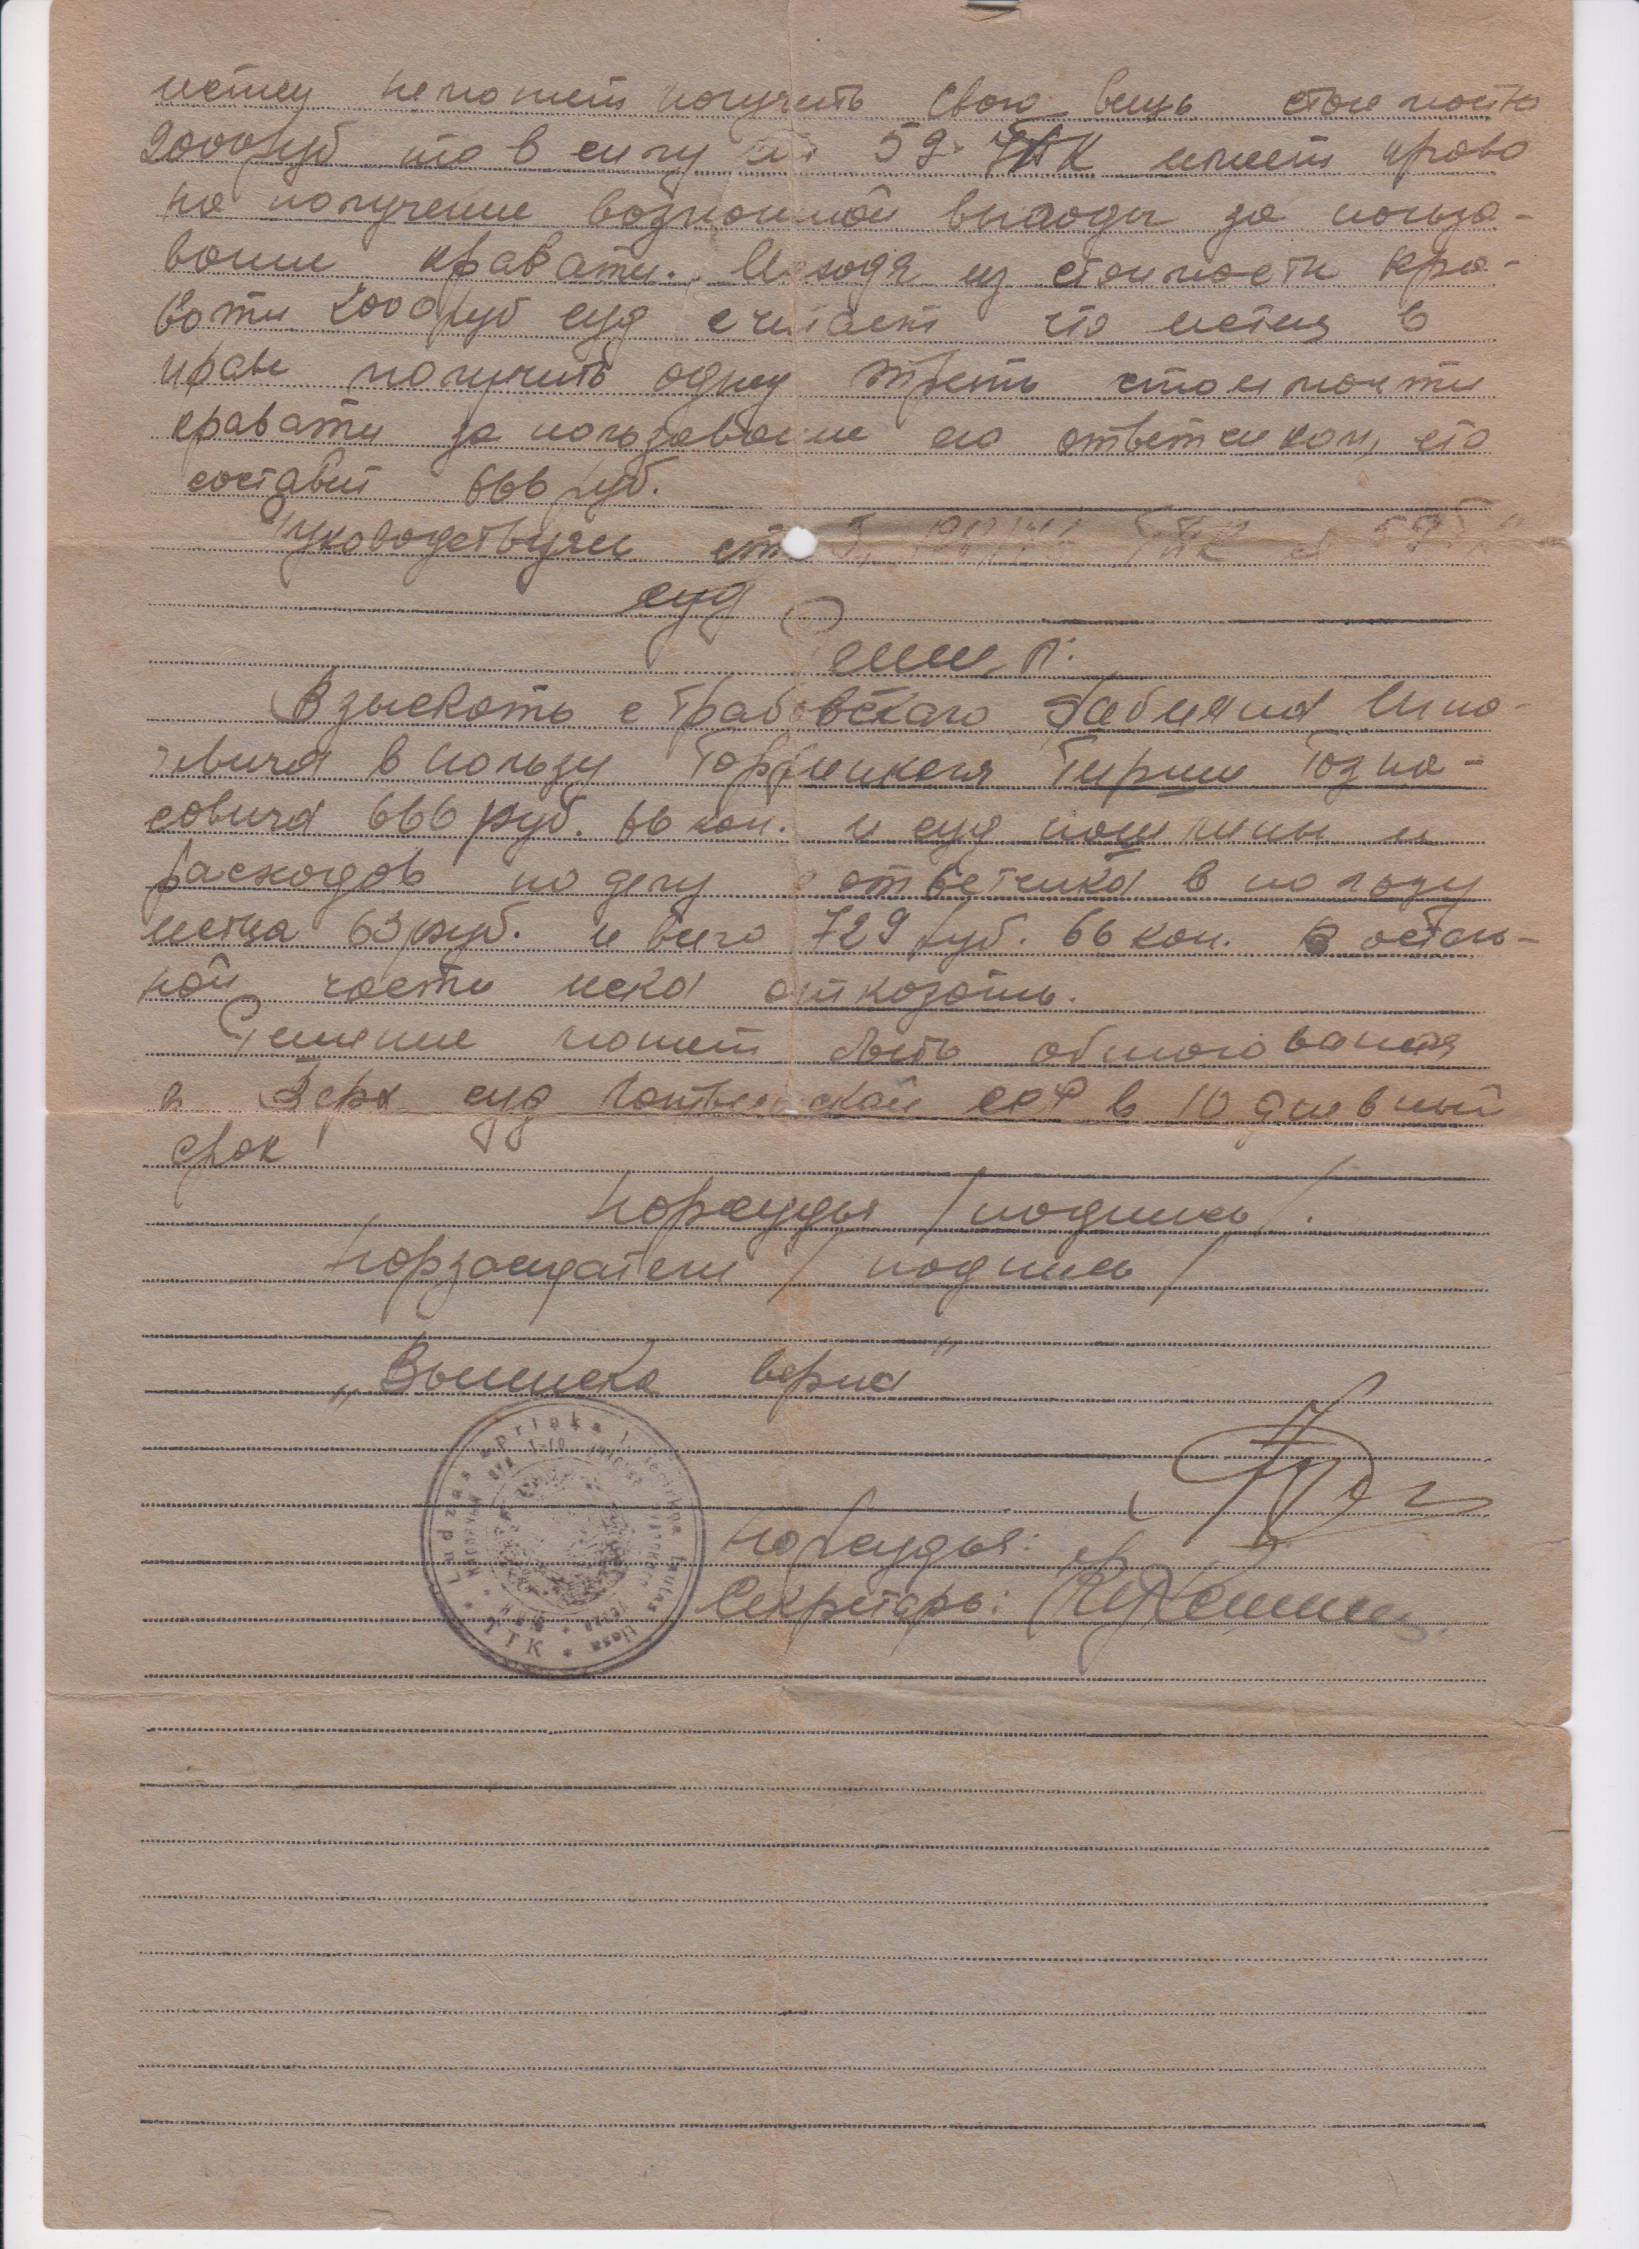 истец не может получить свою вещь стоимостью
2000 руб то в силу ст 59 ГК имеет право
на получение возможной выгоды за пользо-
вание кравати. Исходя из стоимости кра-
вати 2000 руб суд считает что истец в
праве получить одну треть стоимости
кравати за пользование ею ответчиком, это
составит 666 руб.
Руководствуясь ст 59
суд
Решил:
Взыскать с Грабовского Фабияна Игна-
тьевича в пользу Гирши
совича 666 руб. 66 коп. и суд пошлины и
расходов по делу с ответчика в пользу
истца 63 руб. и всего 729 руб. 66 коп. В осталь-
ной части иска отказать.
Решение может быть обжаловано
в Верх суд Латвийской ССР в 10 дневный
срок
Нарсудья /подпись/.
Нарзаседатели /подпись/
„Выписка верна"
Нарсудья:
Секретарь:
Ludzas apriņķa 1. iecirkņa Tautas tiesa * TTK *